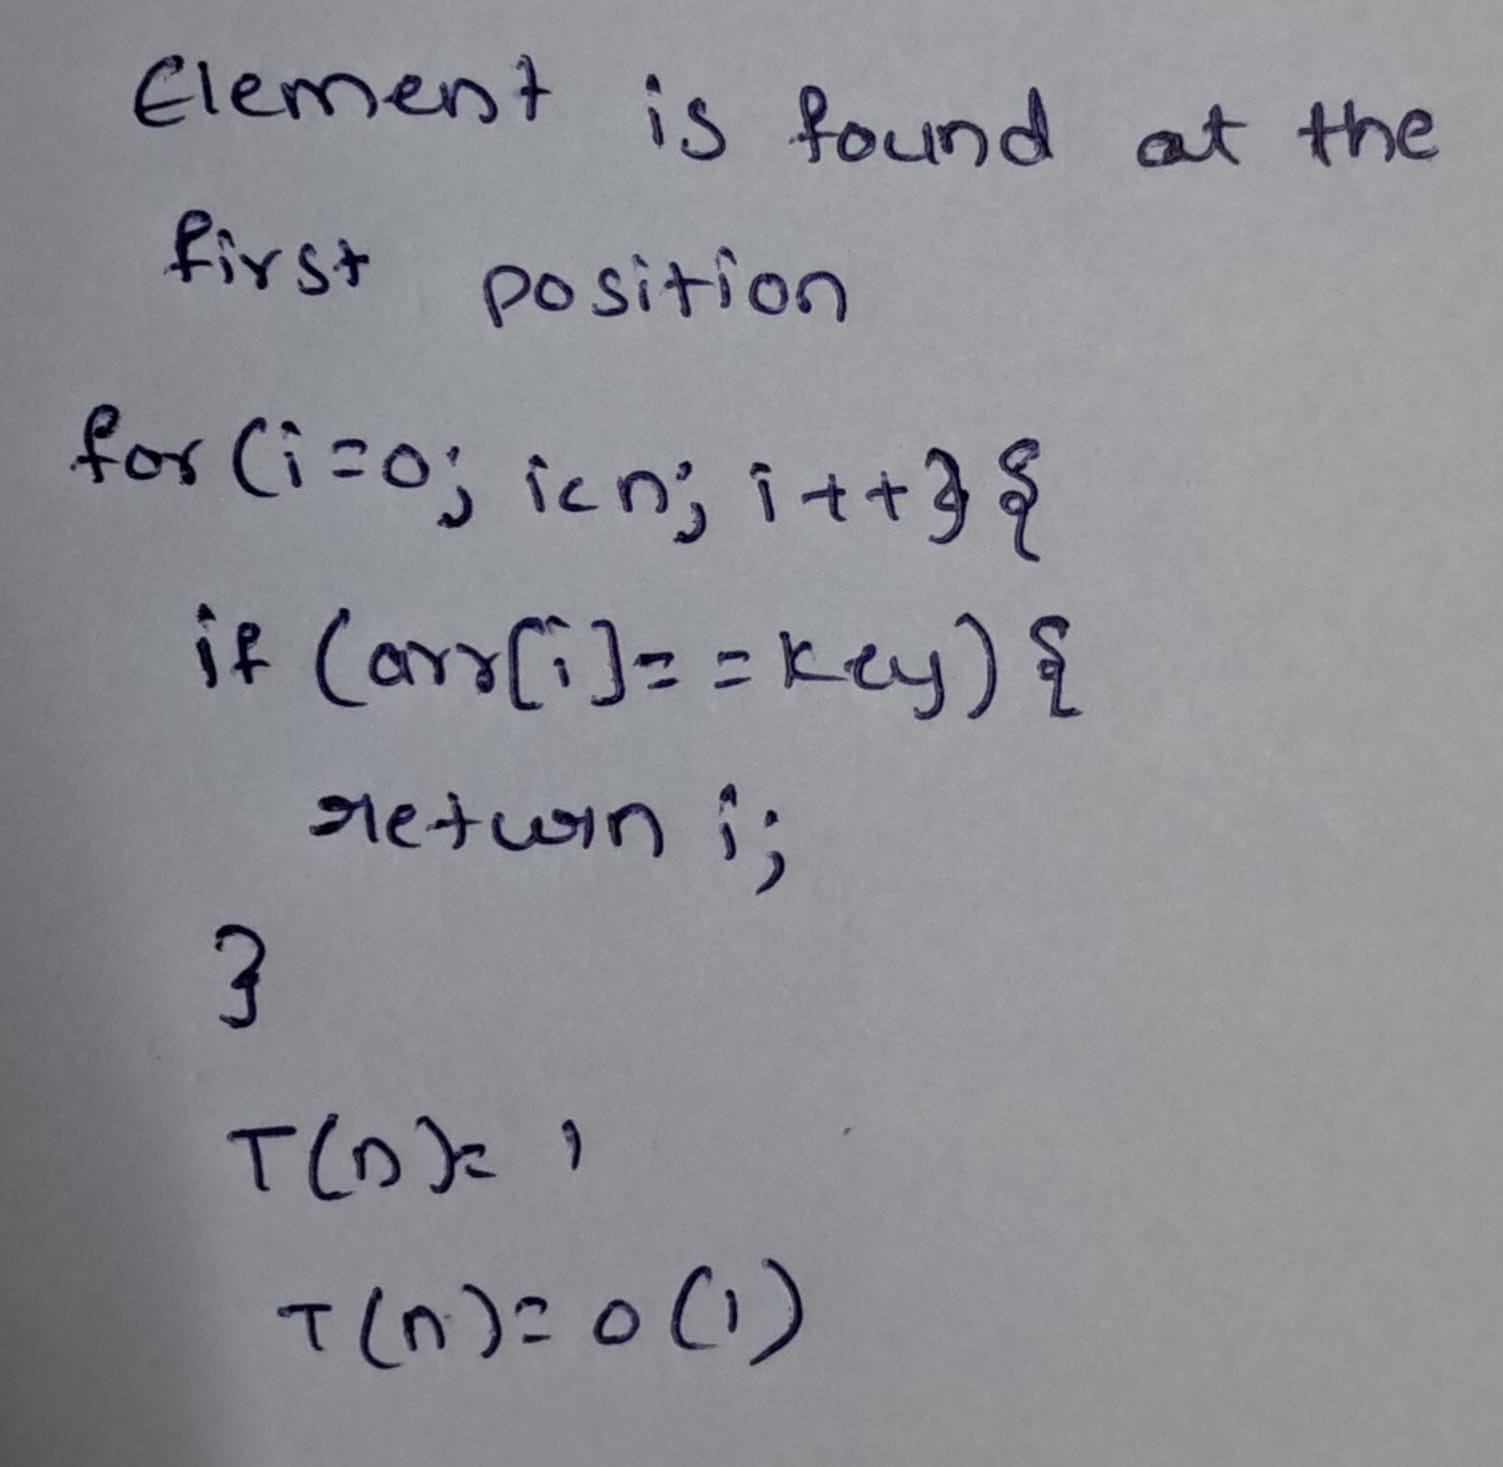 Element is found at the
first position
for (i=0; i<n; i++} {
if (arr[i]==key) {
return i;
}
T(n)= 1
T(n)= O(1)